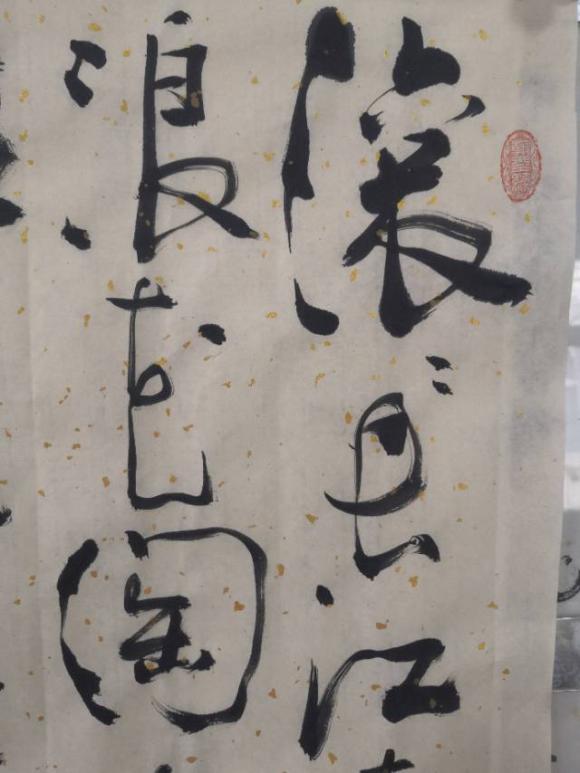 滚々长江
浪花淘